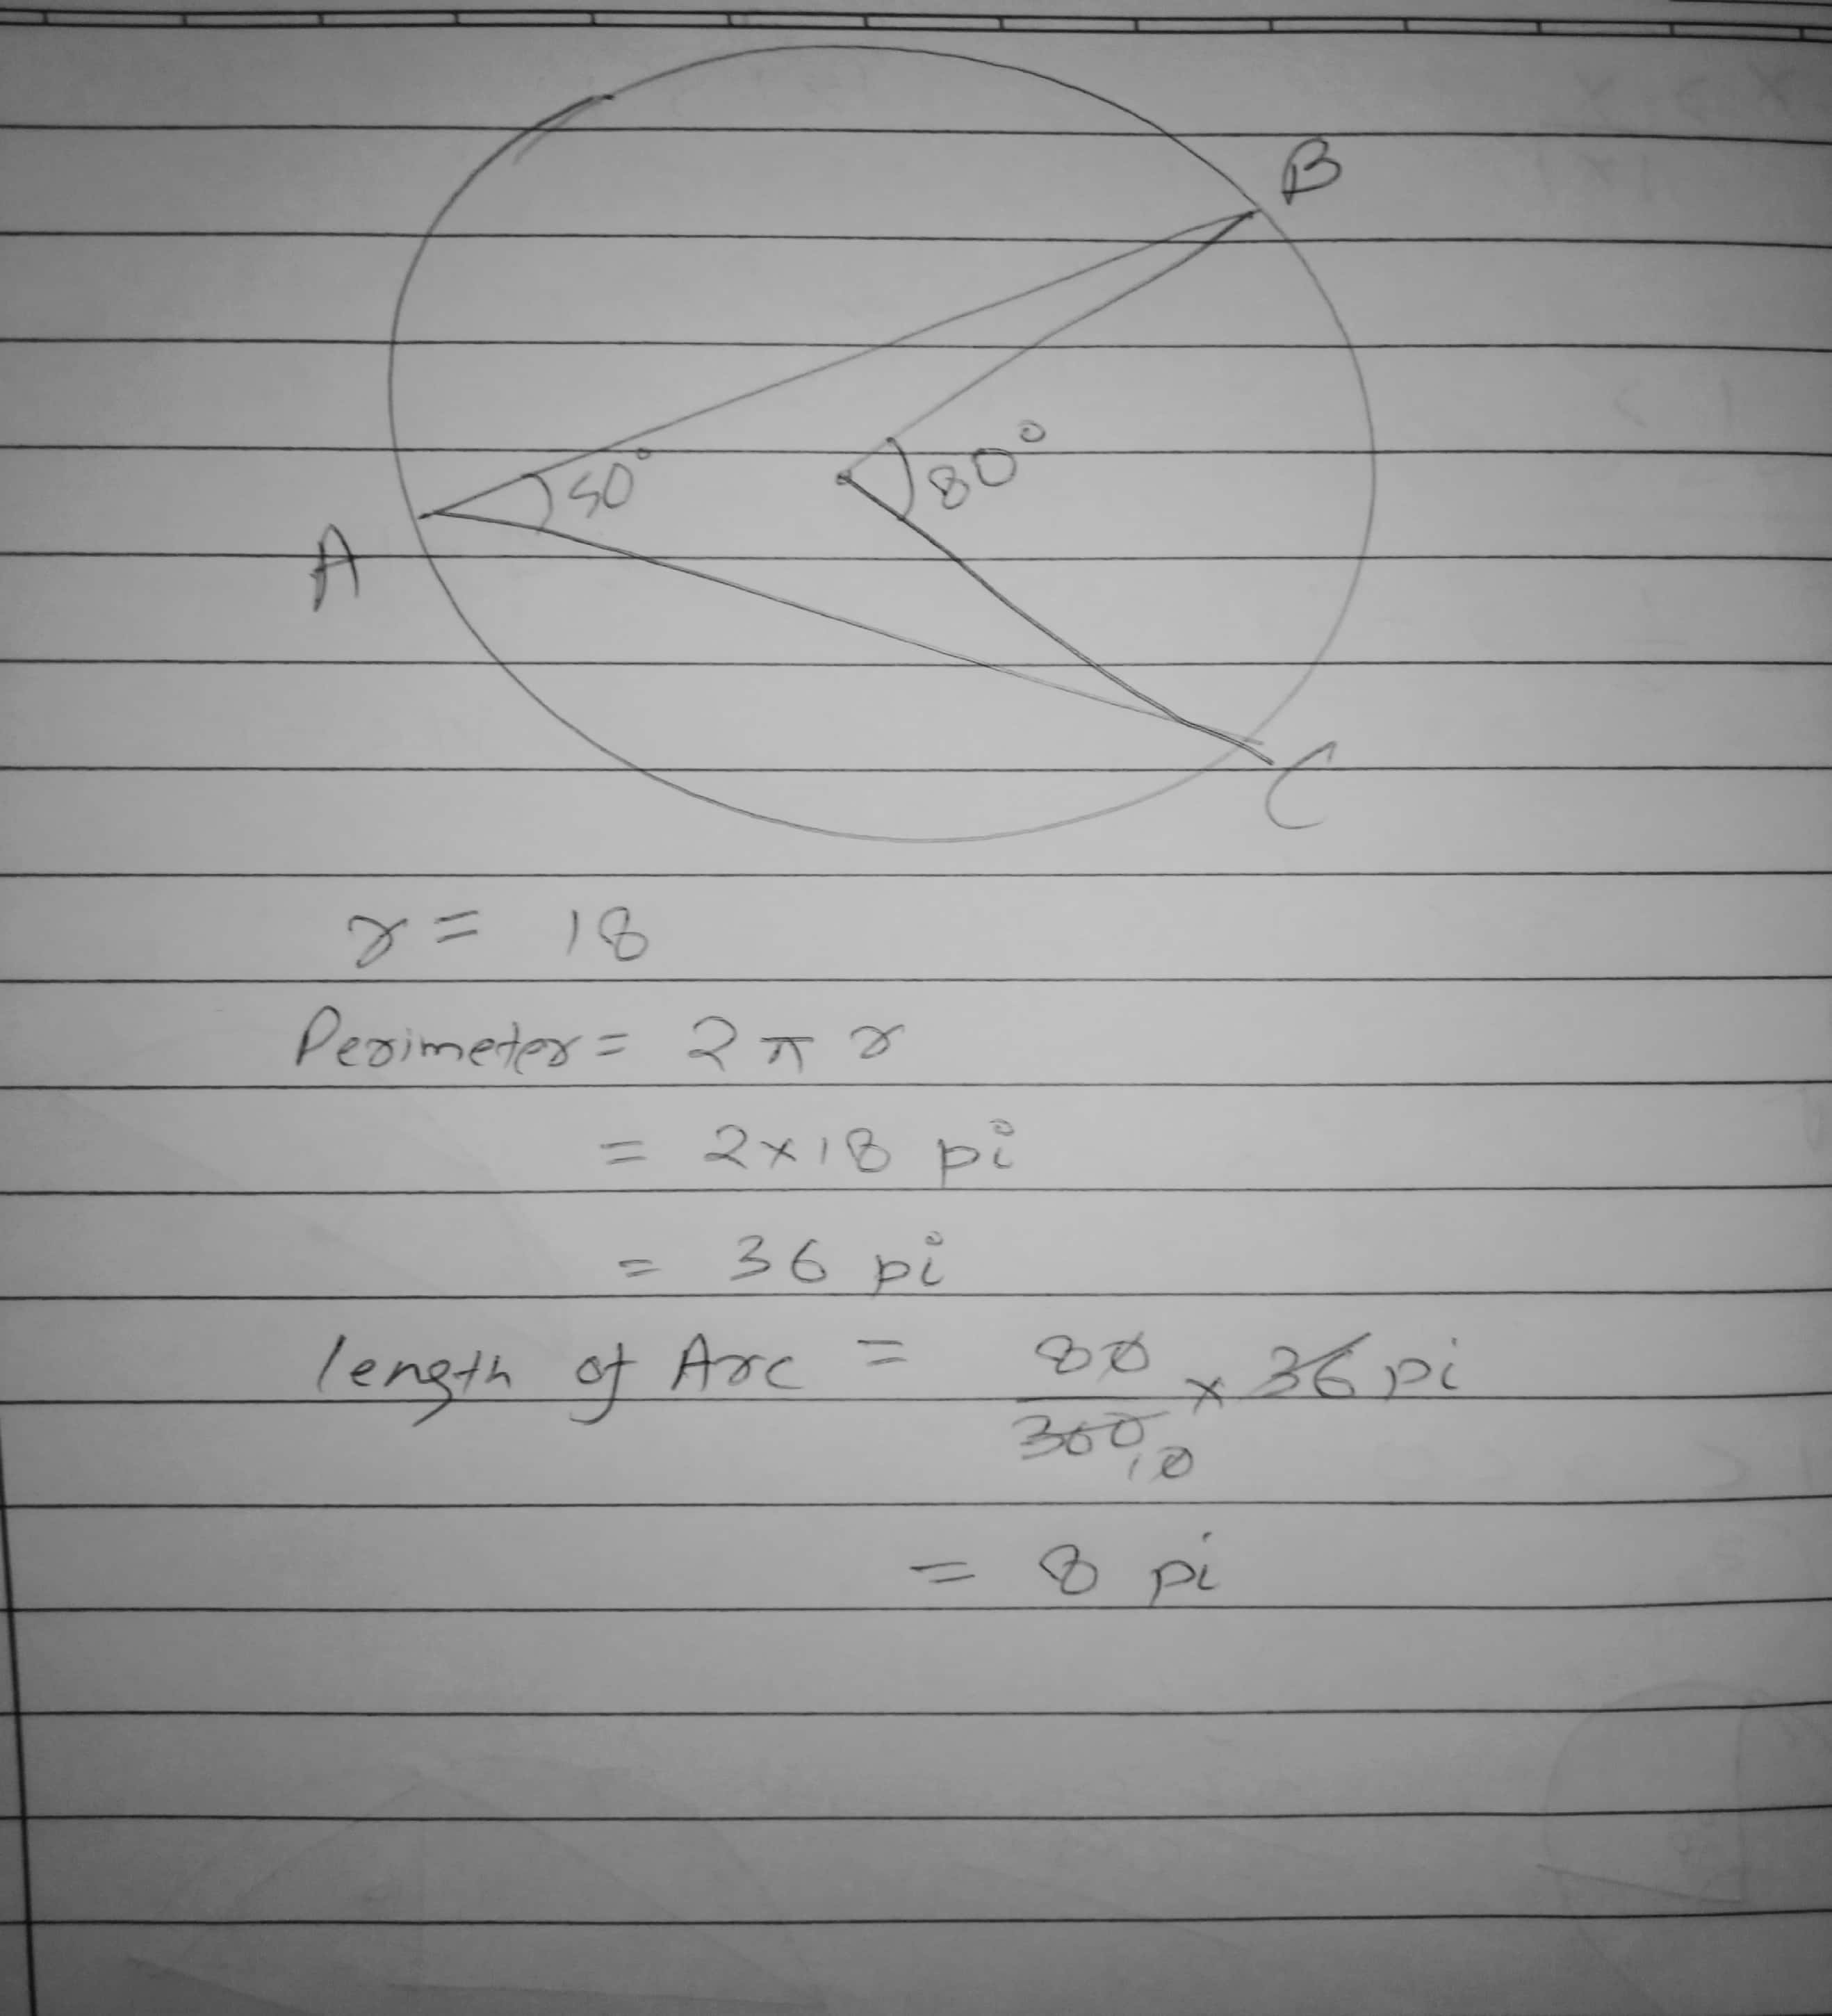 B
50°
80°
A
C
r = 18
Perimeter = 2 π r
= 2×18 pi
= 36 pi
length of Arc = 80/360 × 36 pi
10
= 8 pi